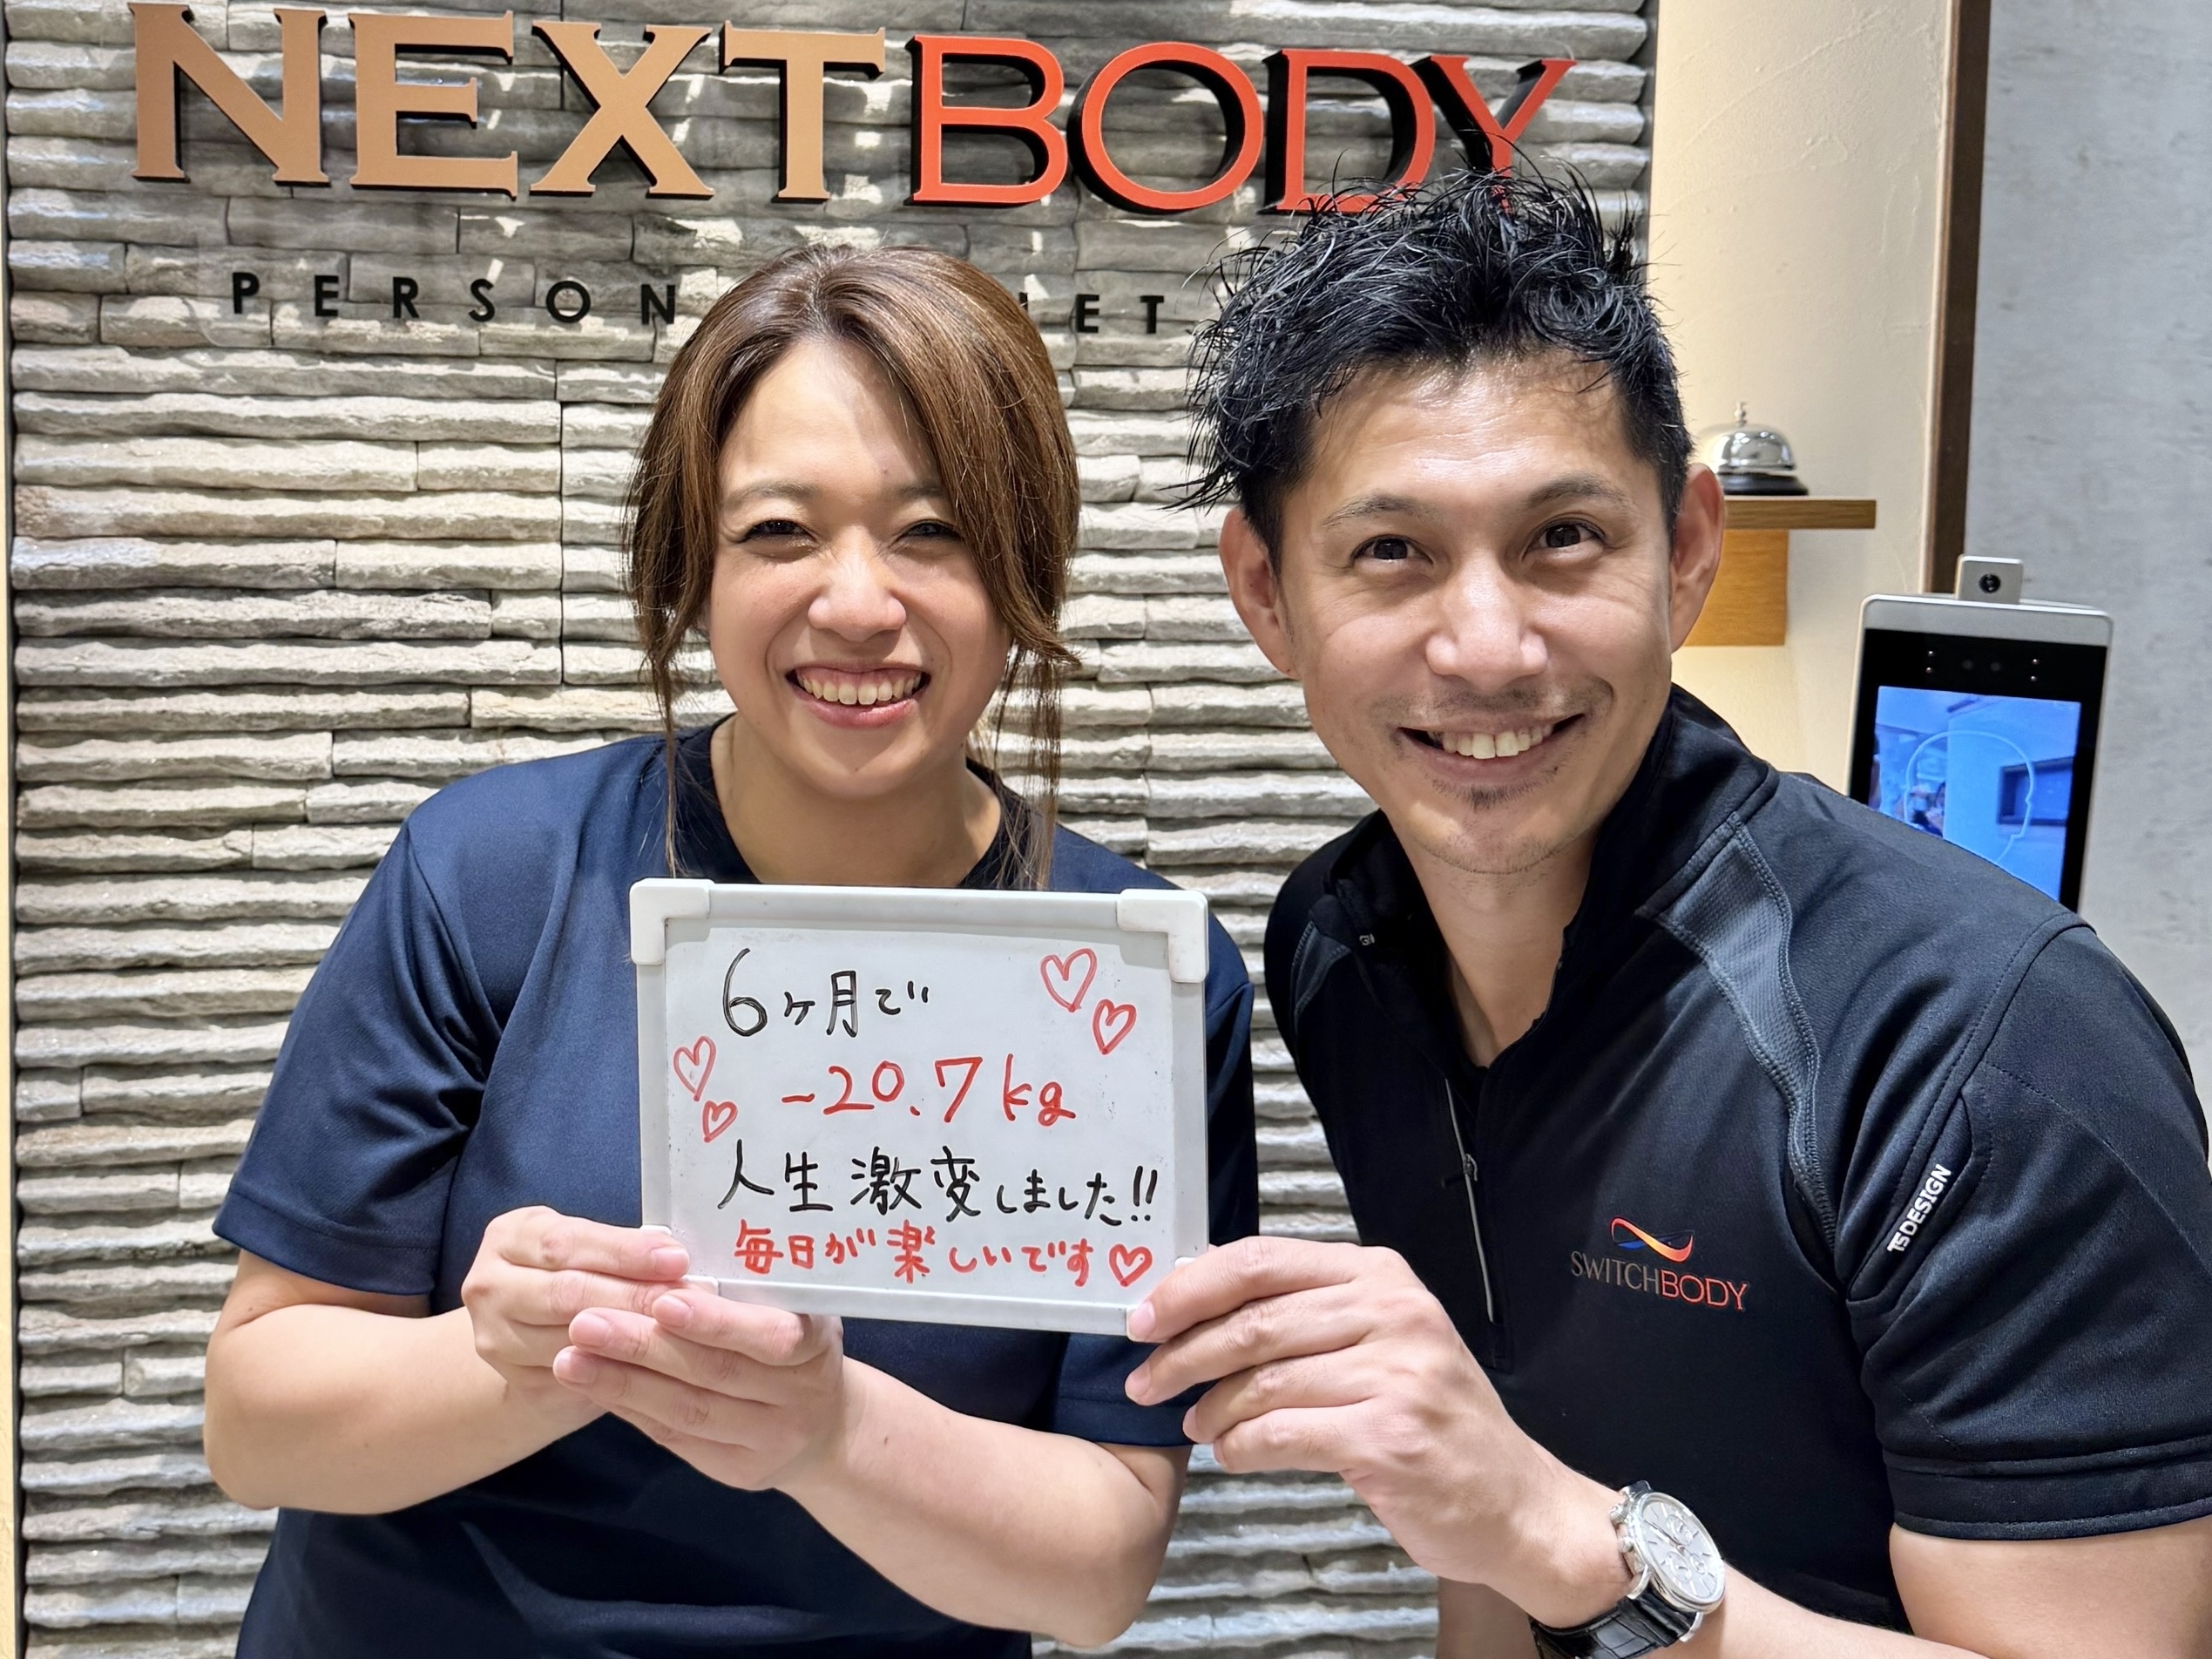 NEXTBODY
6ヶ月で
-20.7kg
人生激変しました!!
毎日が楽しいです♡
SWITCHBODY
TS DESIGN